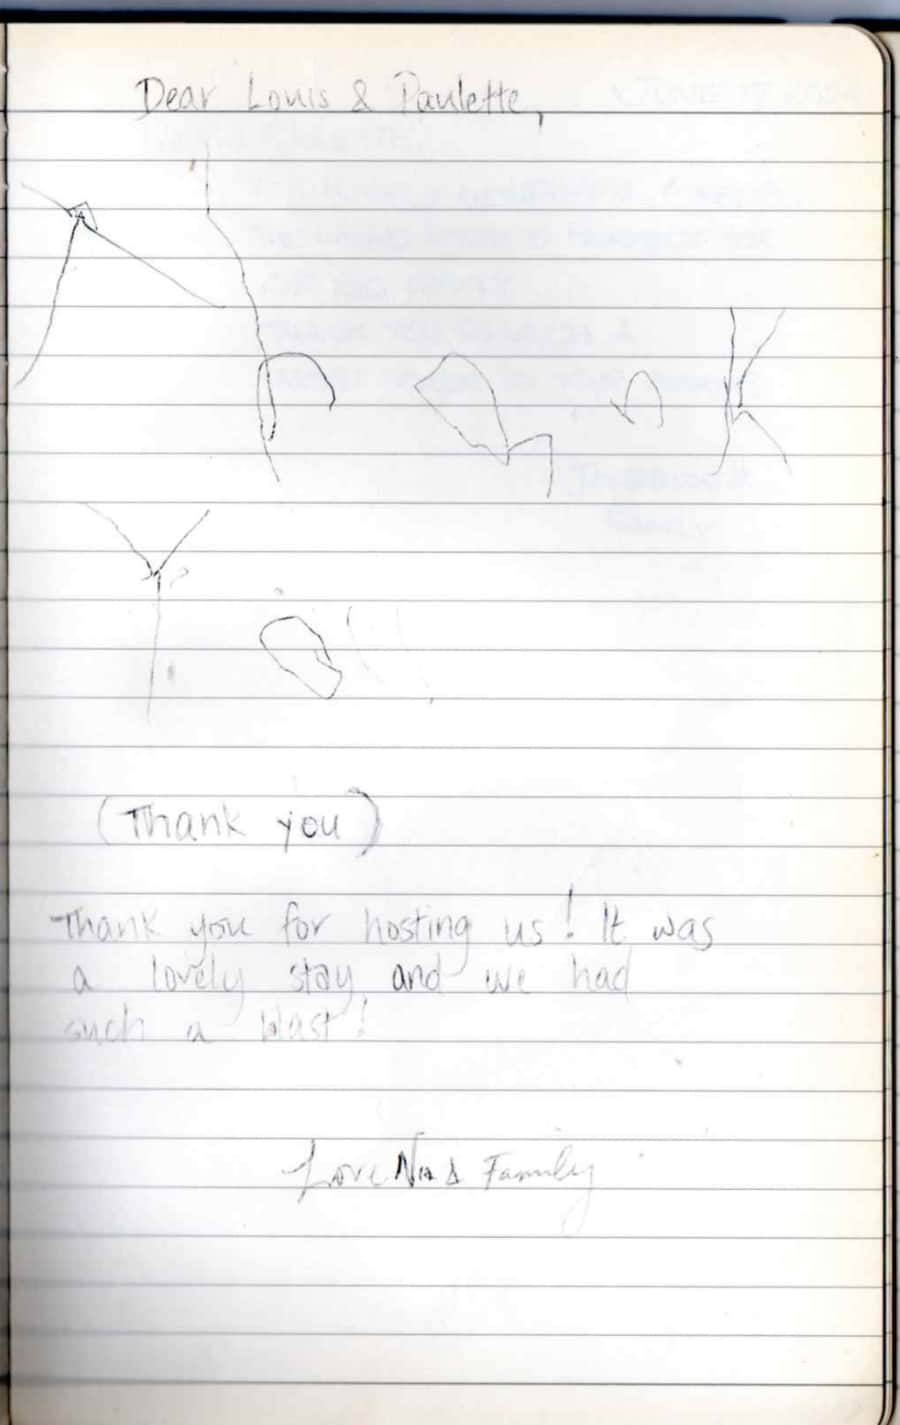 Dear Louis & Paulette,
Thank
Yo
(Thank you)
Thank you for hosting us! It was
a lovely stay and we had
such a blast!
Love Nia & Family